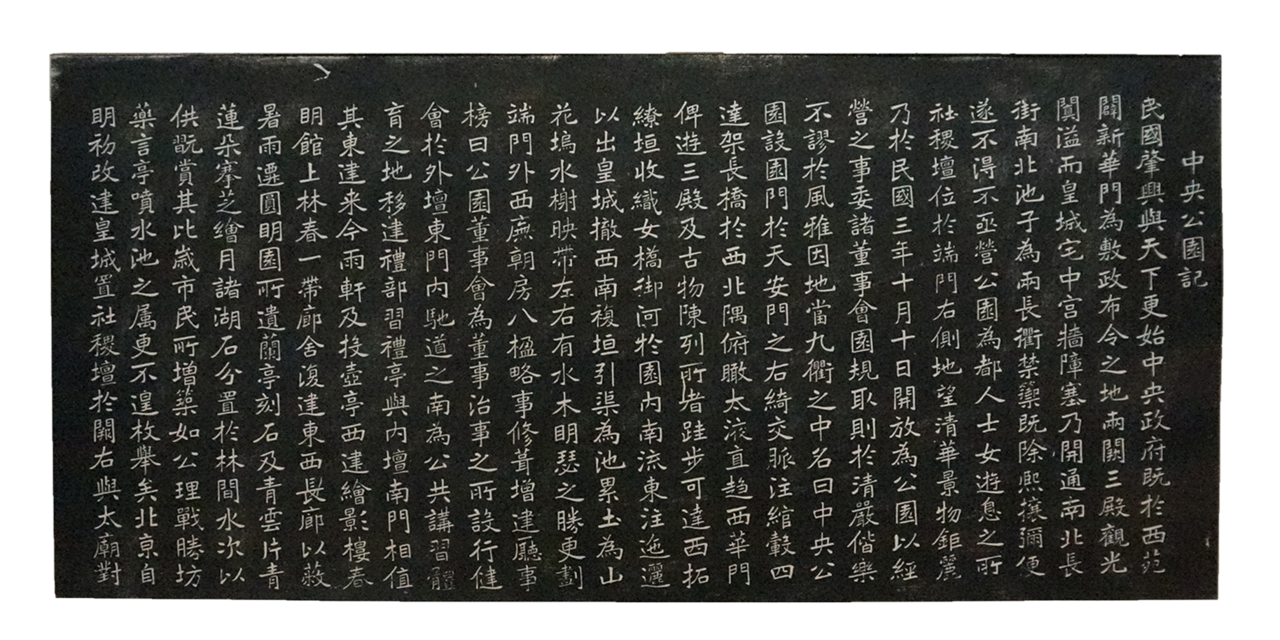 中央公園記
民國肇興與天下更始中央政府既於西苑
闢新華門為敷政布令之地兩闕三殿觀光
闐溢而皇城宅中宮牆障塞乃開通南北長
街南北池子為兩長衢禁籞既除熙攘彌便
遂不得不亟營公園為都人士女遊息之所
社稷壇位於端門右側地望清華景物鉅麗
乃於民國三年十月十日開放為公園以經
營之事委諸董事會園規取則於清嚴偕樂
不謬於風雅因地當九衢之中名曰中央公
園設園門於天安門之右綺交脈注綰轂四
達架長橋於西北隅俯瞰太液直趨西華門
俾遊三殿及古物陳列所者跬步可達西拓
繚垣收織女橋御河於園內南流東注迤邐
以出皇城撤西南複垣引渠為池累土為山
花塢水榭映帶左右有水木明瑟之勝更劃
端門外西廡朝房八楹略事修葺增建廳事
榜曰公園董事會為董事治事之所設行健
會於外壇東門內馳道之南為公共講習體
育之地移建禮部習禮亭與內壇南門相值
其東建来今雨軒及投壺亭西建繪影樓春
明館上林春一帶廊舍復建東西長廊以蔽
暑雨遷圓明園所遺蘭亭刻石及青雲片青
蓮朵搴芝繪月諸湖石分置於林間水次以
供翫賞其比歲市民所增築如公理戰勝坊
藥言亭噴水池之屬更不遑枚舉矣北京自
明初改建皇城置社稷壇於闕右與太廟對